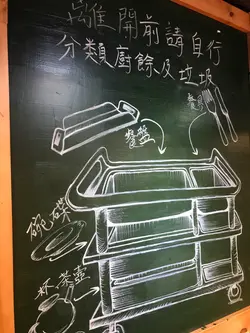 離開前請自行
分類廚餘及垃圾
餐具
餐盤
碗、碟
杯、茶壺